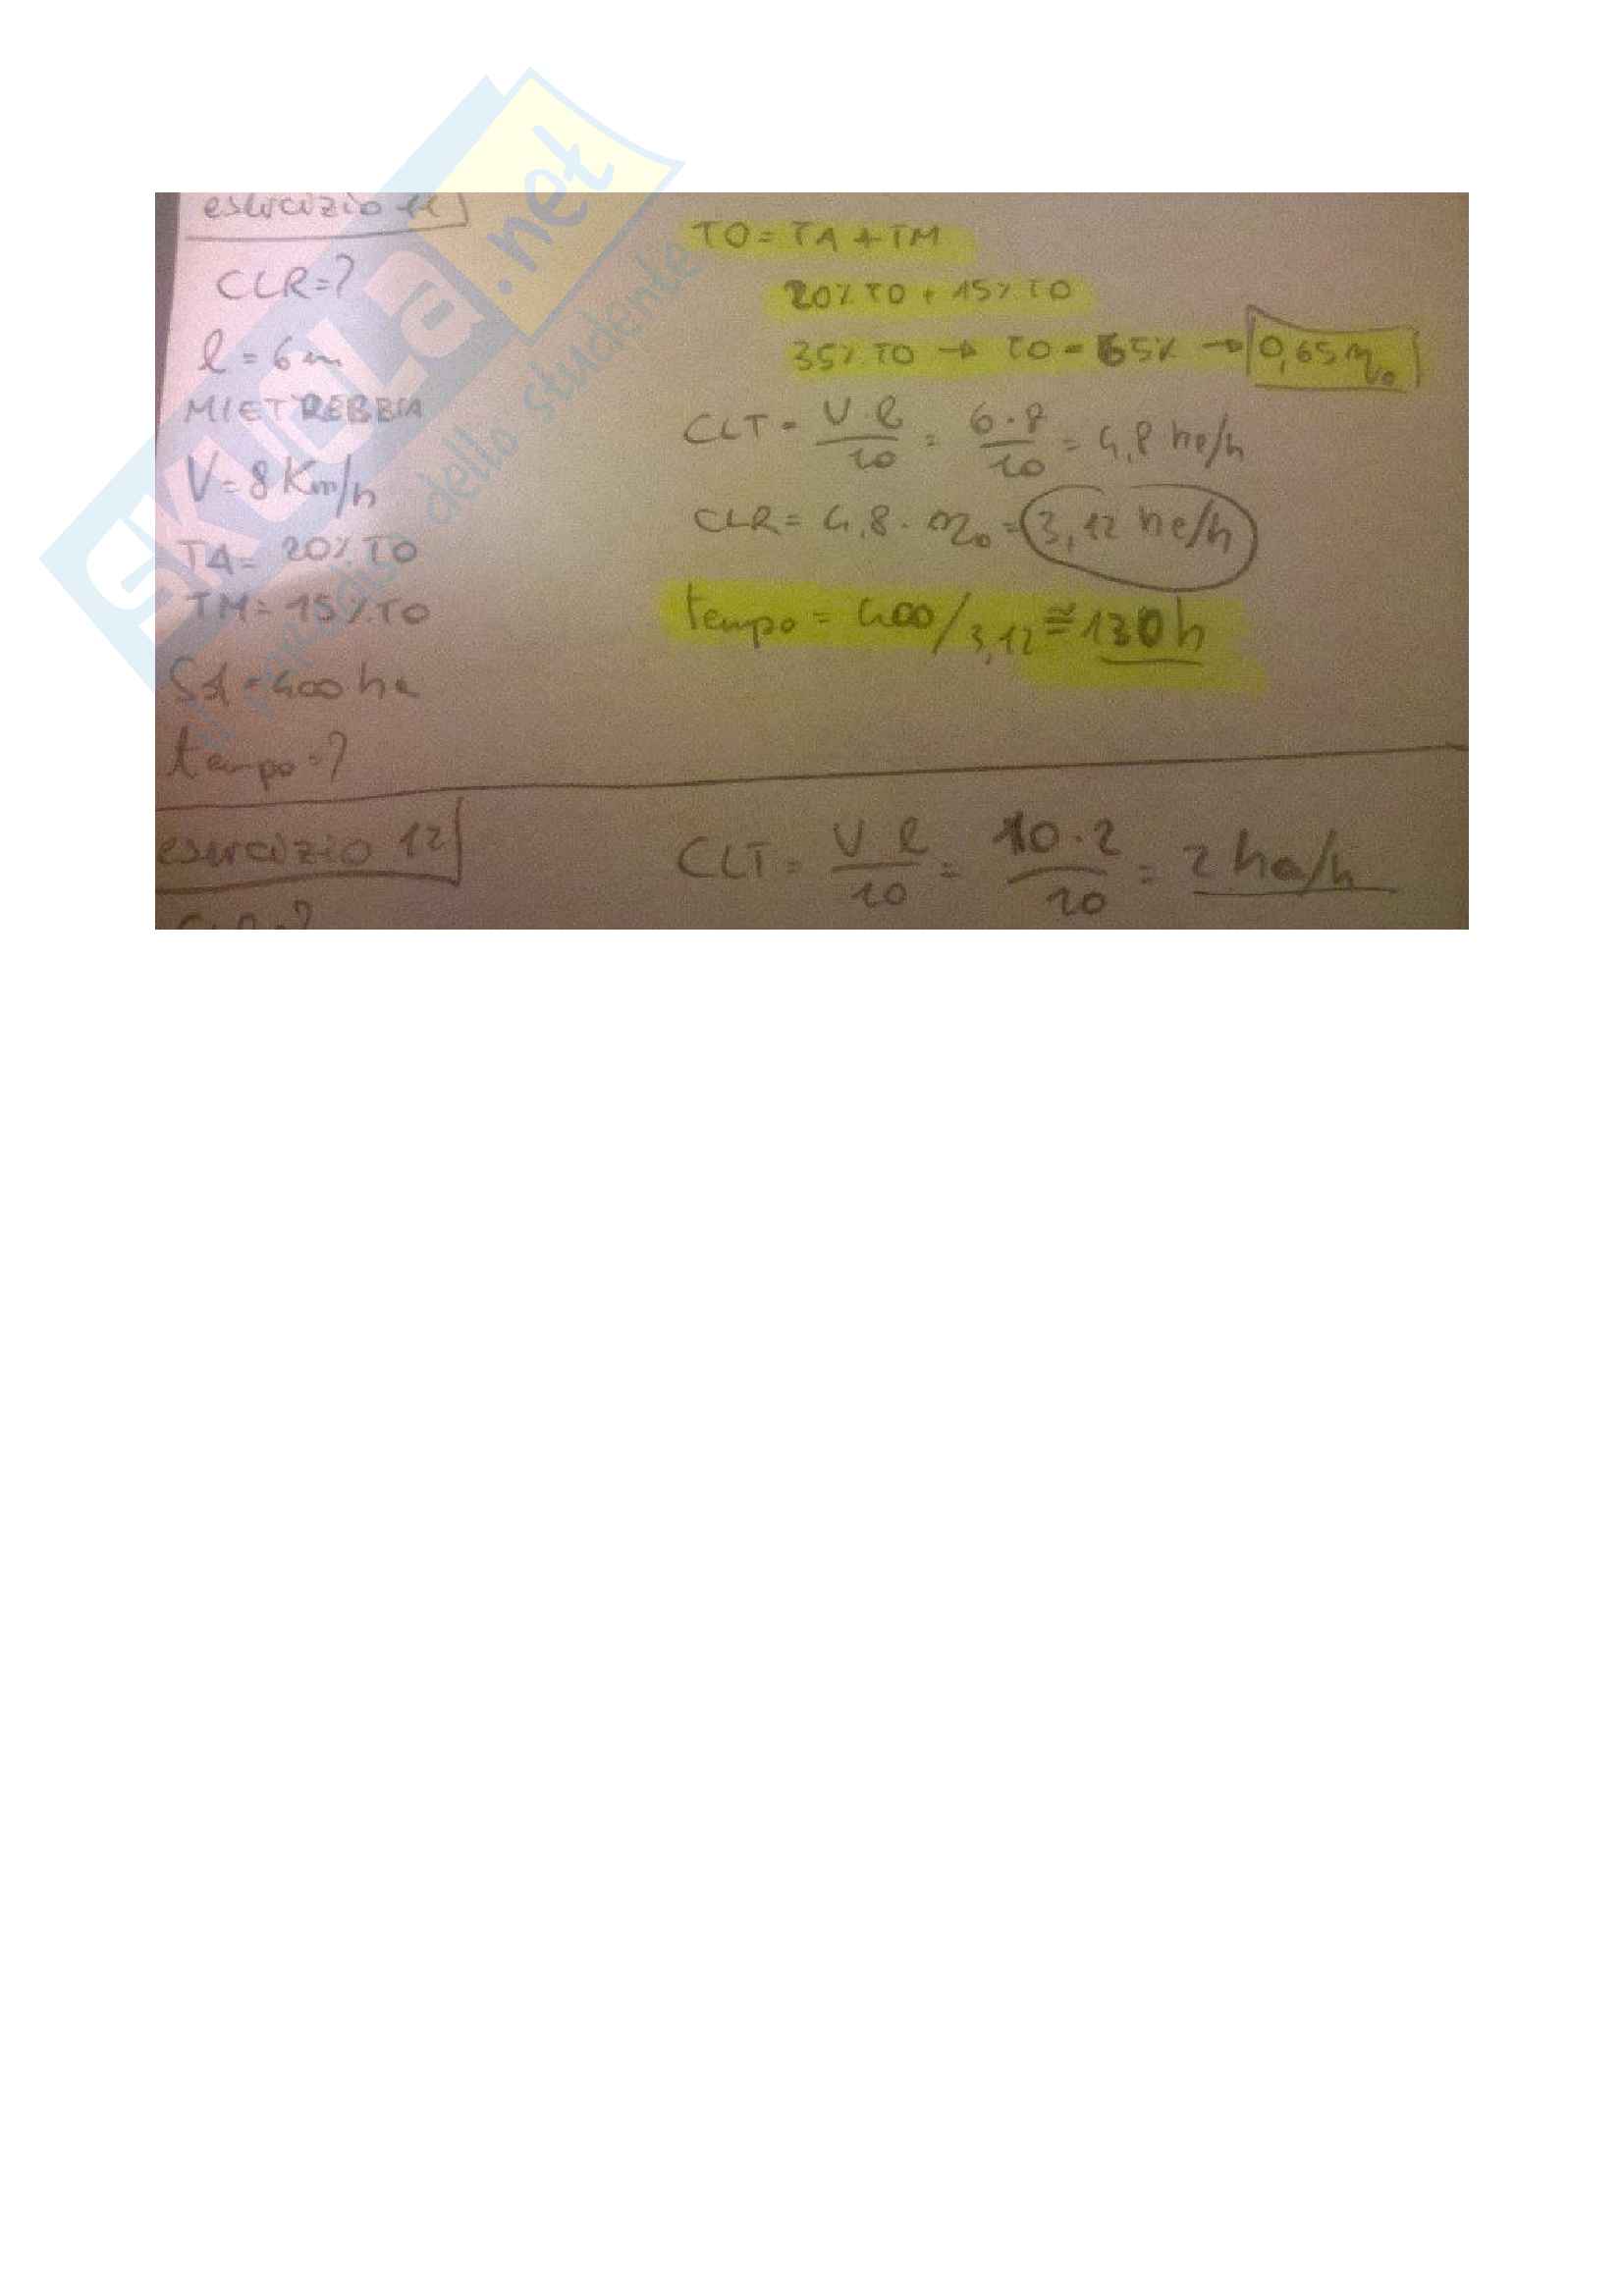 esercizio 11
CLR=?
l = 6 m
MIETREBBIA
V = 8 Km/h
TA = 20% TO
TM = 15% TO
= 400 ha
tempo = ?
TO = TA + TM
20% TO + 15% TO
35% TO → TO = 65% → 0,65 η₀
CLT = V l / 10 = 6·8 / 10 = 4,8 ha/h
CLR = 4,8 · η₀ = 3,12 ha/h
tempo = 400/3,12 ≅ 130 h
esercizio 12
CLT = V l / 10 = 10·2 / 10 = 2 ha/h
SKUOLA.net
il paradiso dello studente